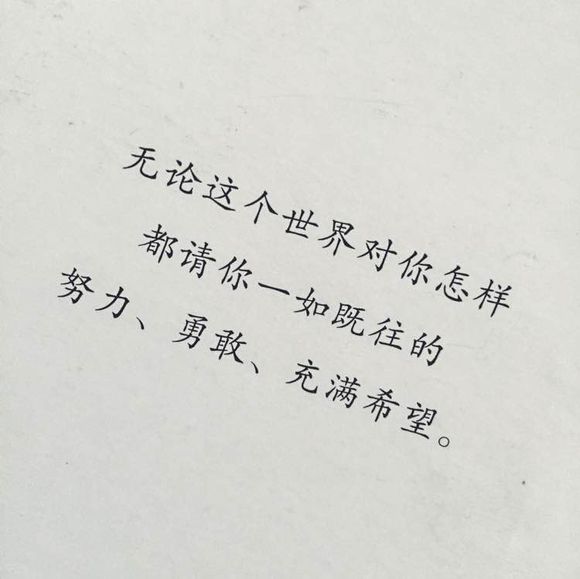 无论这个世界对你怎样
都请你一如既往的
努力、勇敢、充满希望。